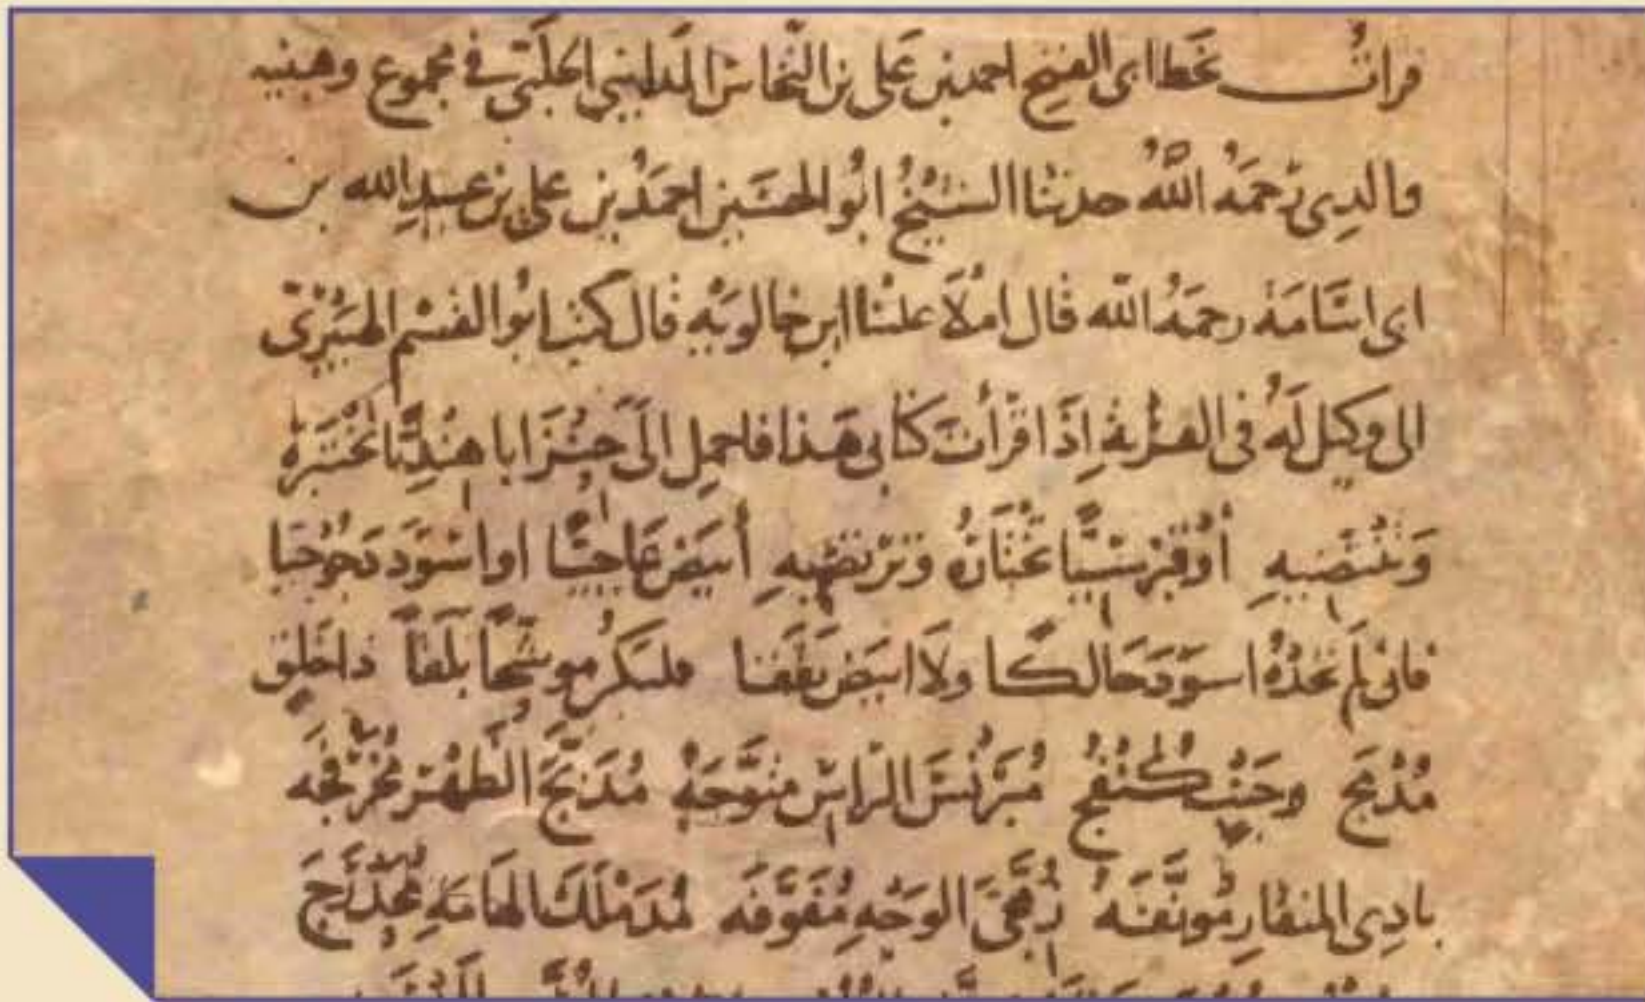 قرأت بخط ابي الفتح احمد بن علي بن النحاس المدايني الحلبي في مجموع وهبنيه
والدي رَحمَهُ اللَّهُ حدثنا الشيخُ ابُو الحسَين احمَدُ بن علي بن عبدِ الله بن
ابي اسَامَة رحمَهُ الله قال امْلَا علينَا ابن خالوَيْهِ قال كتب ابُو القسم الهَبَيْريّ
الى وكيل لَهُ في القرية إِذَا قرَأتَ كتابي هَذا فاحمِل إلَىَّ حِنْزَابا هِنْدِيًّا تختَرهُ
وَتنْتَضيهِ أوْ قبرسيًّا تخْتَارُهُ وترتضيهِ أبيَض عَاجيًّا او اسْوَد دَجُوجيا
فان لَم تجدْهُ اسوَد حَالكًا ولَا ابيَض يَقَقا فليكن موشّحًا بَلَقاً ذا خلق
مُدْمَج وجَنْب مُبَرْنسَ الرّاسِ متوّجَهُ مُدَبّجَ الظهْر
بادِي المنقارِ مُونّفَهُ الوَجْهِ مُفَوَّفَه مُدَمْلَكَ الهَامَةِ